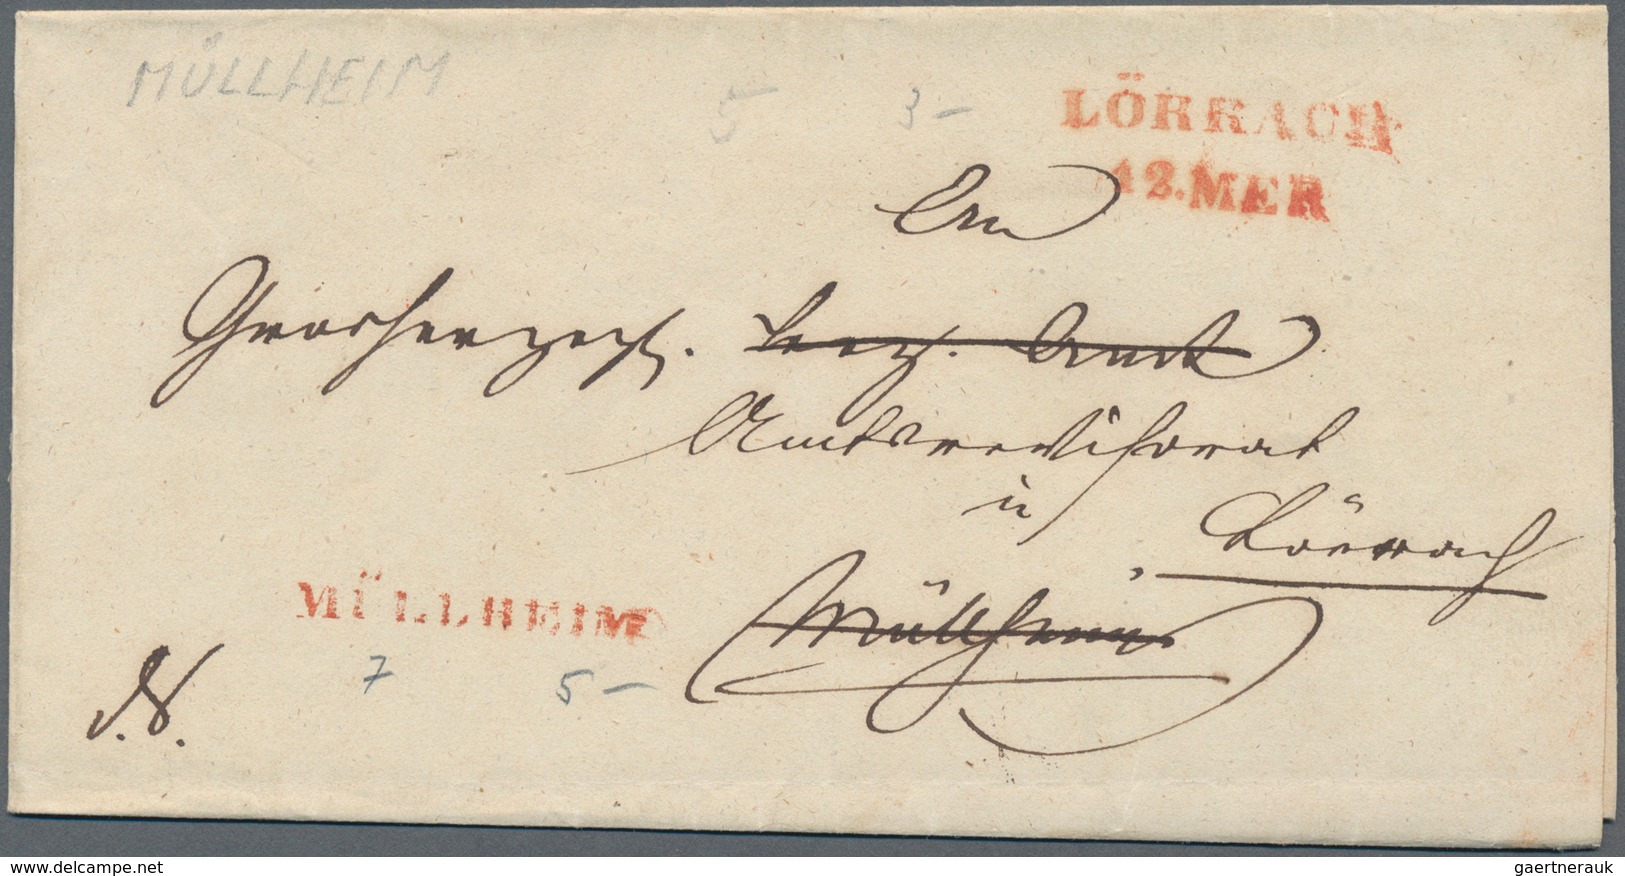 MÜLLHEIM
5 3 –
LÖRRACH
12. MER
An
Grosherzogl. Bez. Amt
Amtsrevisorat
in
Lörrach
Müllheim
MÜLLHEIM
7 5 –
d. S.
the-saleroom.com
gaertnerauk